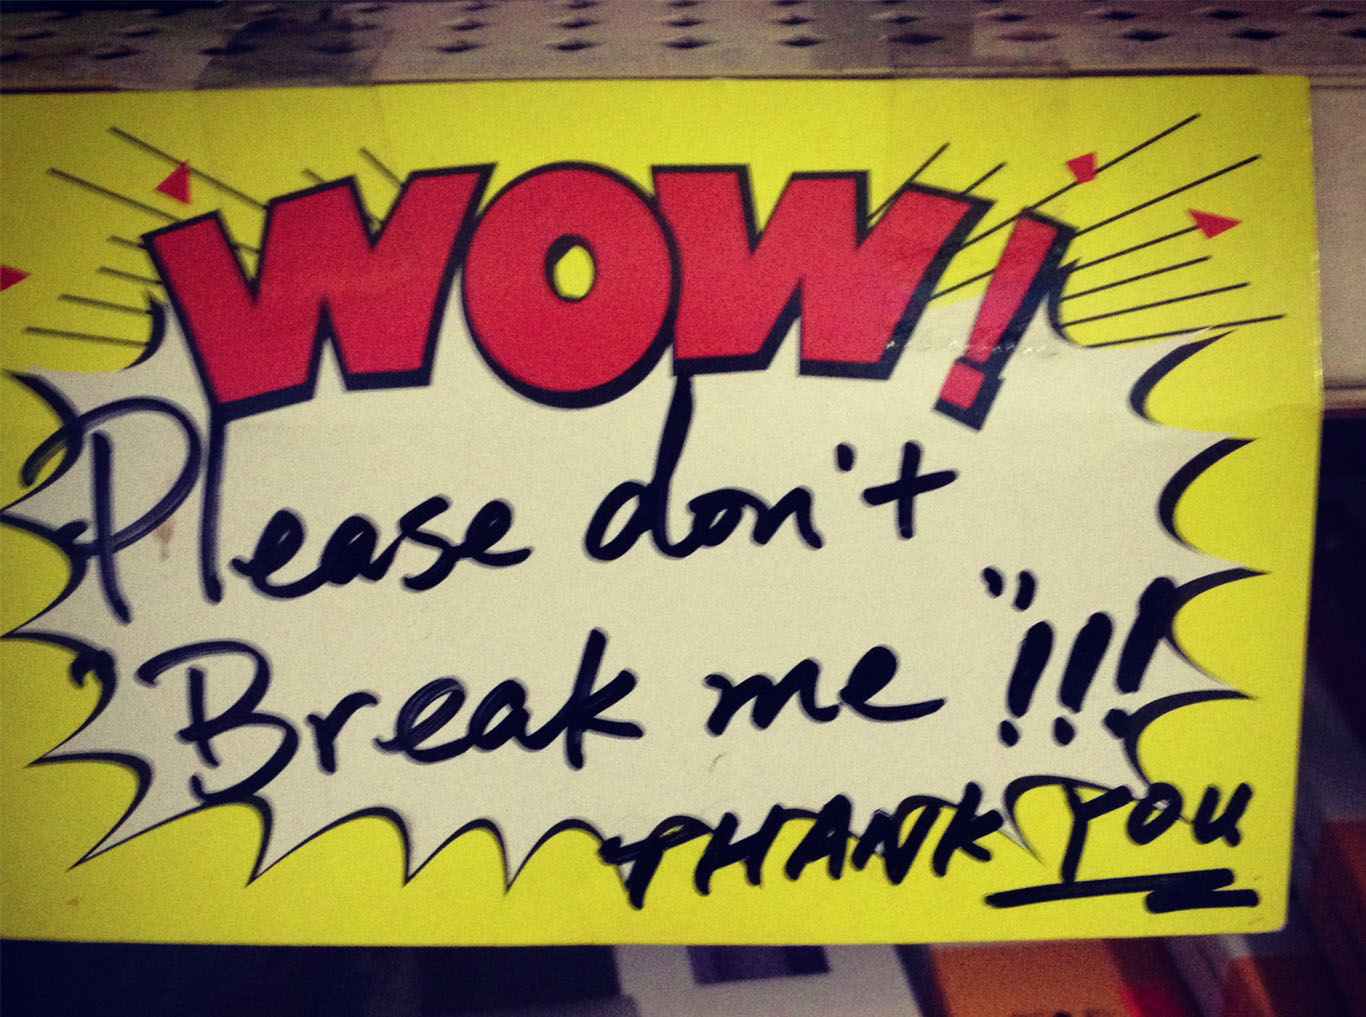 WOW!
Please don't
"Break me"!!!
THANK YOU